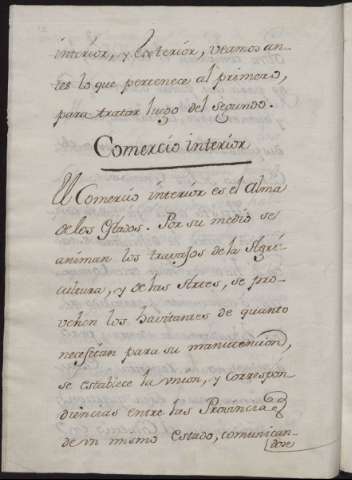 interior, y Exterior, veamos an-
tes lo que pertenece al primero,
para tratar luego del segundo.
Comercio interior
El Comercio interior es el alma
de los Estados. Por su medio se
animan los travajos de la Agri-
cultura, y de las Artes, se pro-
vehen los havitantes de quanto
necesitan para su manutencion,
se establece la union, y correspon
diencias entre las Provincias
de un mismo estado, comunican-
dose